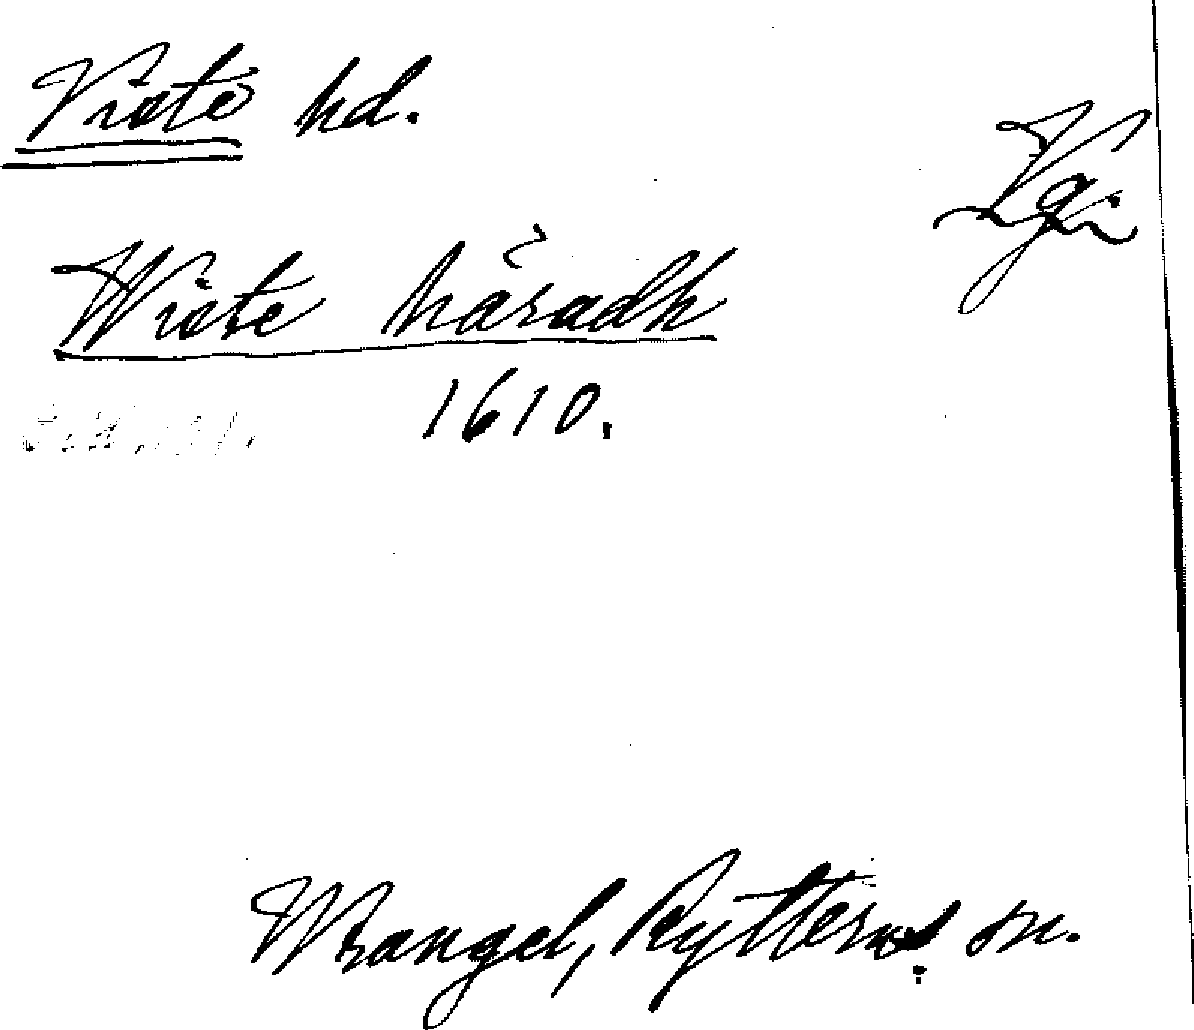 Viste hd.
Vg.
Wiste häradh
1610.
Wrangel, Rytterns sn.